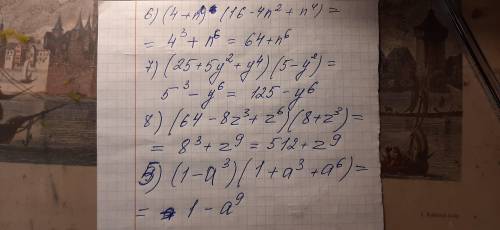 6) (4+n²) (16-4n²+n⁴) =
= 4³+n⁶ = 64+n⁶
7) (25+5y²+y⁴)(5-y²) =
5³-y⁶ = 125-y⁶
8) (64-8z³+z⁶)(8+z³) =
= 8³+z⁹ = 512+z⁹
5) (1-a³)(1+a³+a⁶) =
= 1-a⁹